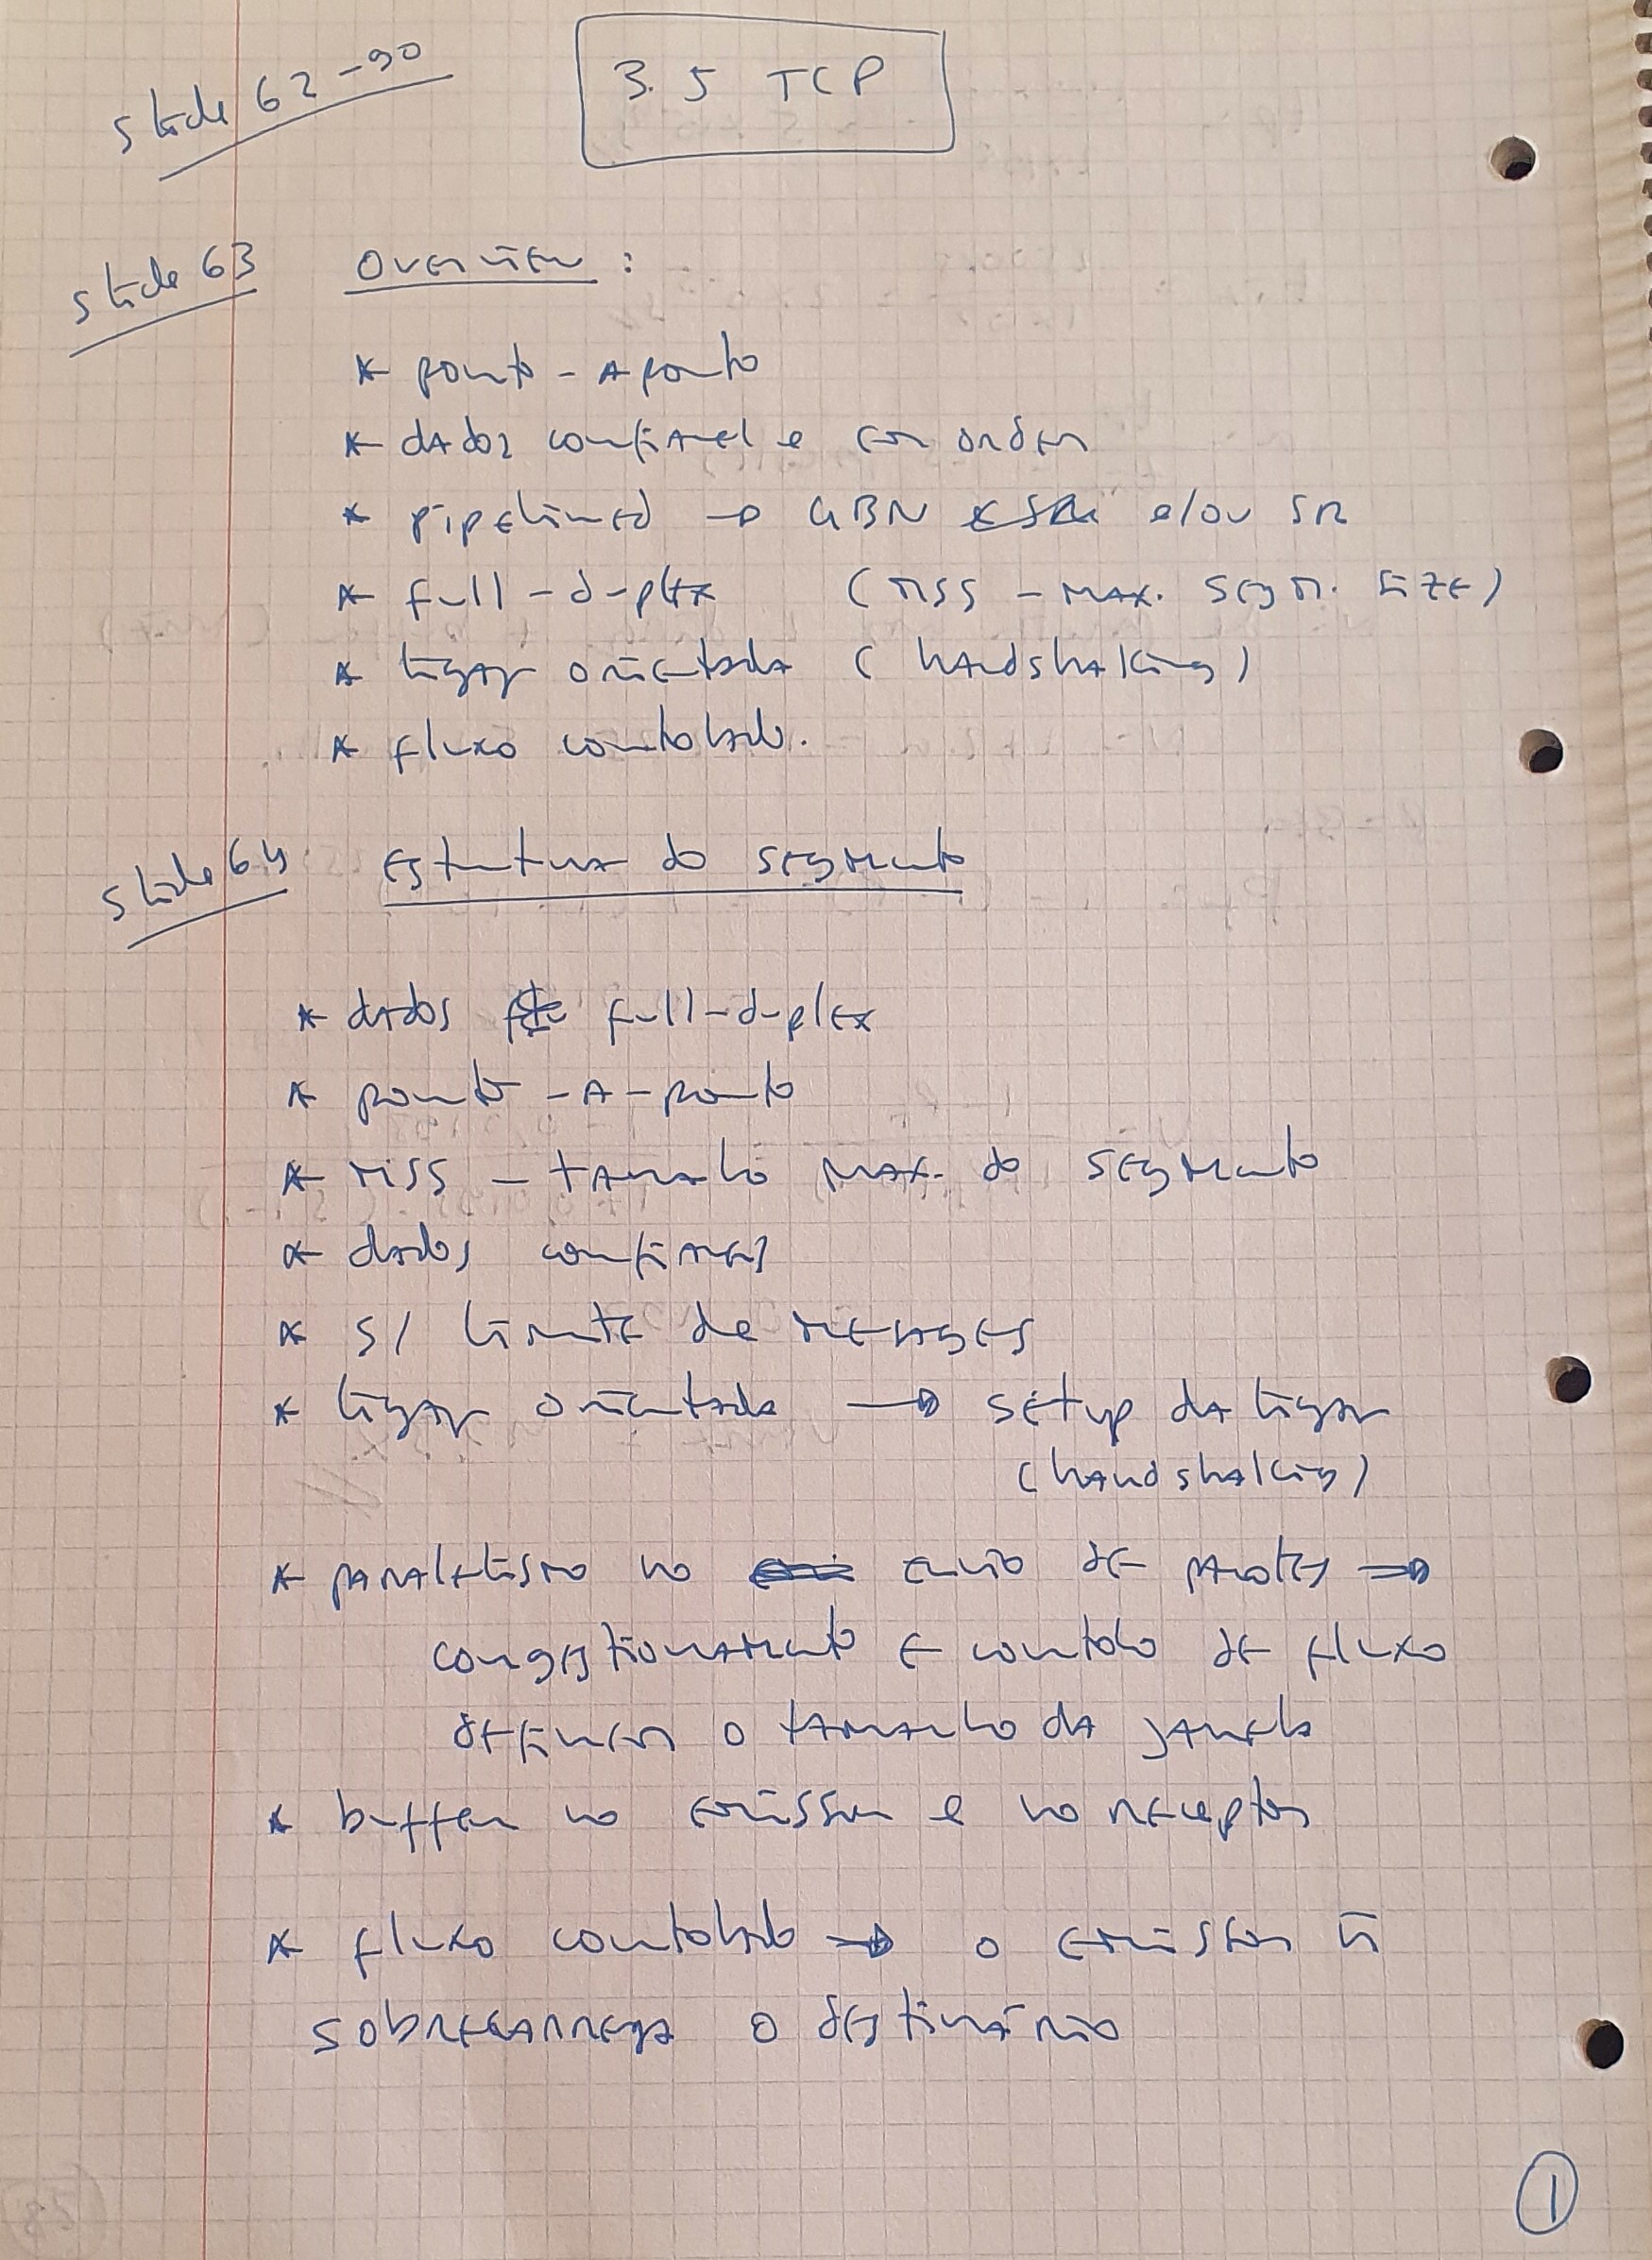 slide 62-90
3.5 TCP
slide 63
Overview :
* ponto - a ponto
* dados confiavel e em ordem
* pipelined → GBN e/ou SR
* full-duplex (MSS - MAX. SEGM. SIZE)
* ligaç orientada (handshaking)
* fluxo controlado.
slide 64
Estrutura do segmento
* dados full-duplex
* ponto -a- ponto
* MSS - tamanho MAX. do segmento
* dados confiaveis
* s/ limite de
* ligaç orientada → setup da ligaç
(handshaking)
* paralelismo no envio de pacotes →
congestionamento e controlo de fluxo
definem o tamanho da janela
* buffer no emissor e no receptor
* fluxo controlado → o emissor ñ
sobrecarrega o destinário
1